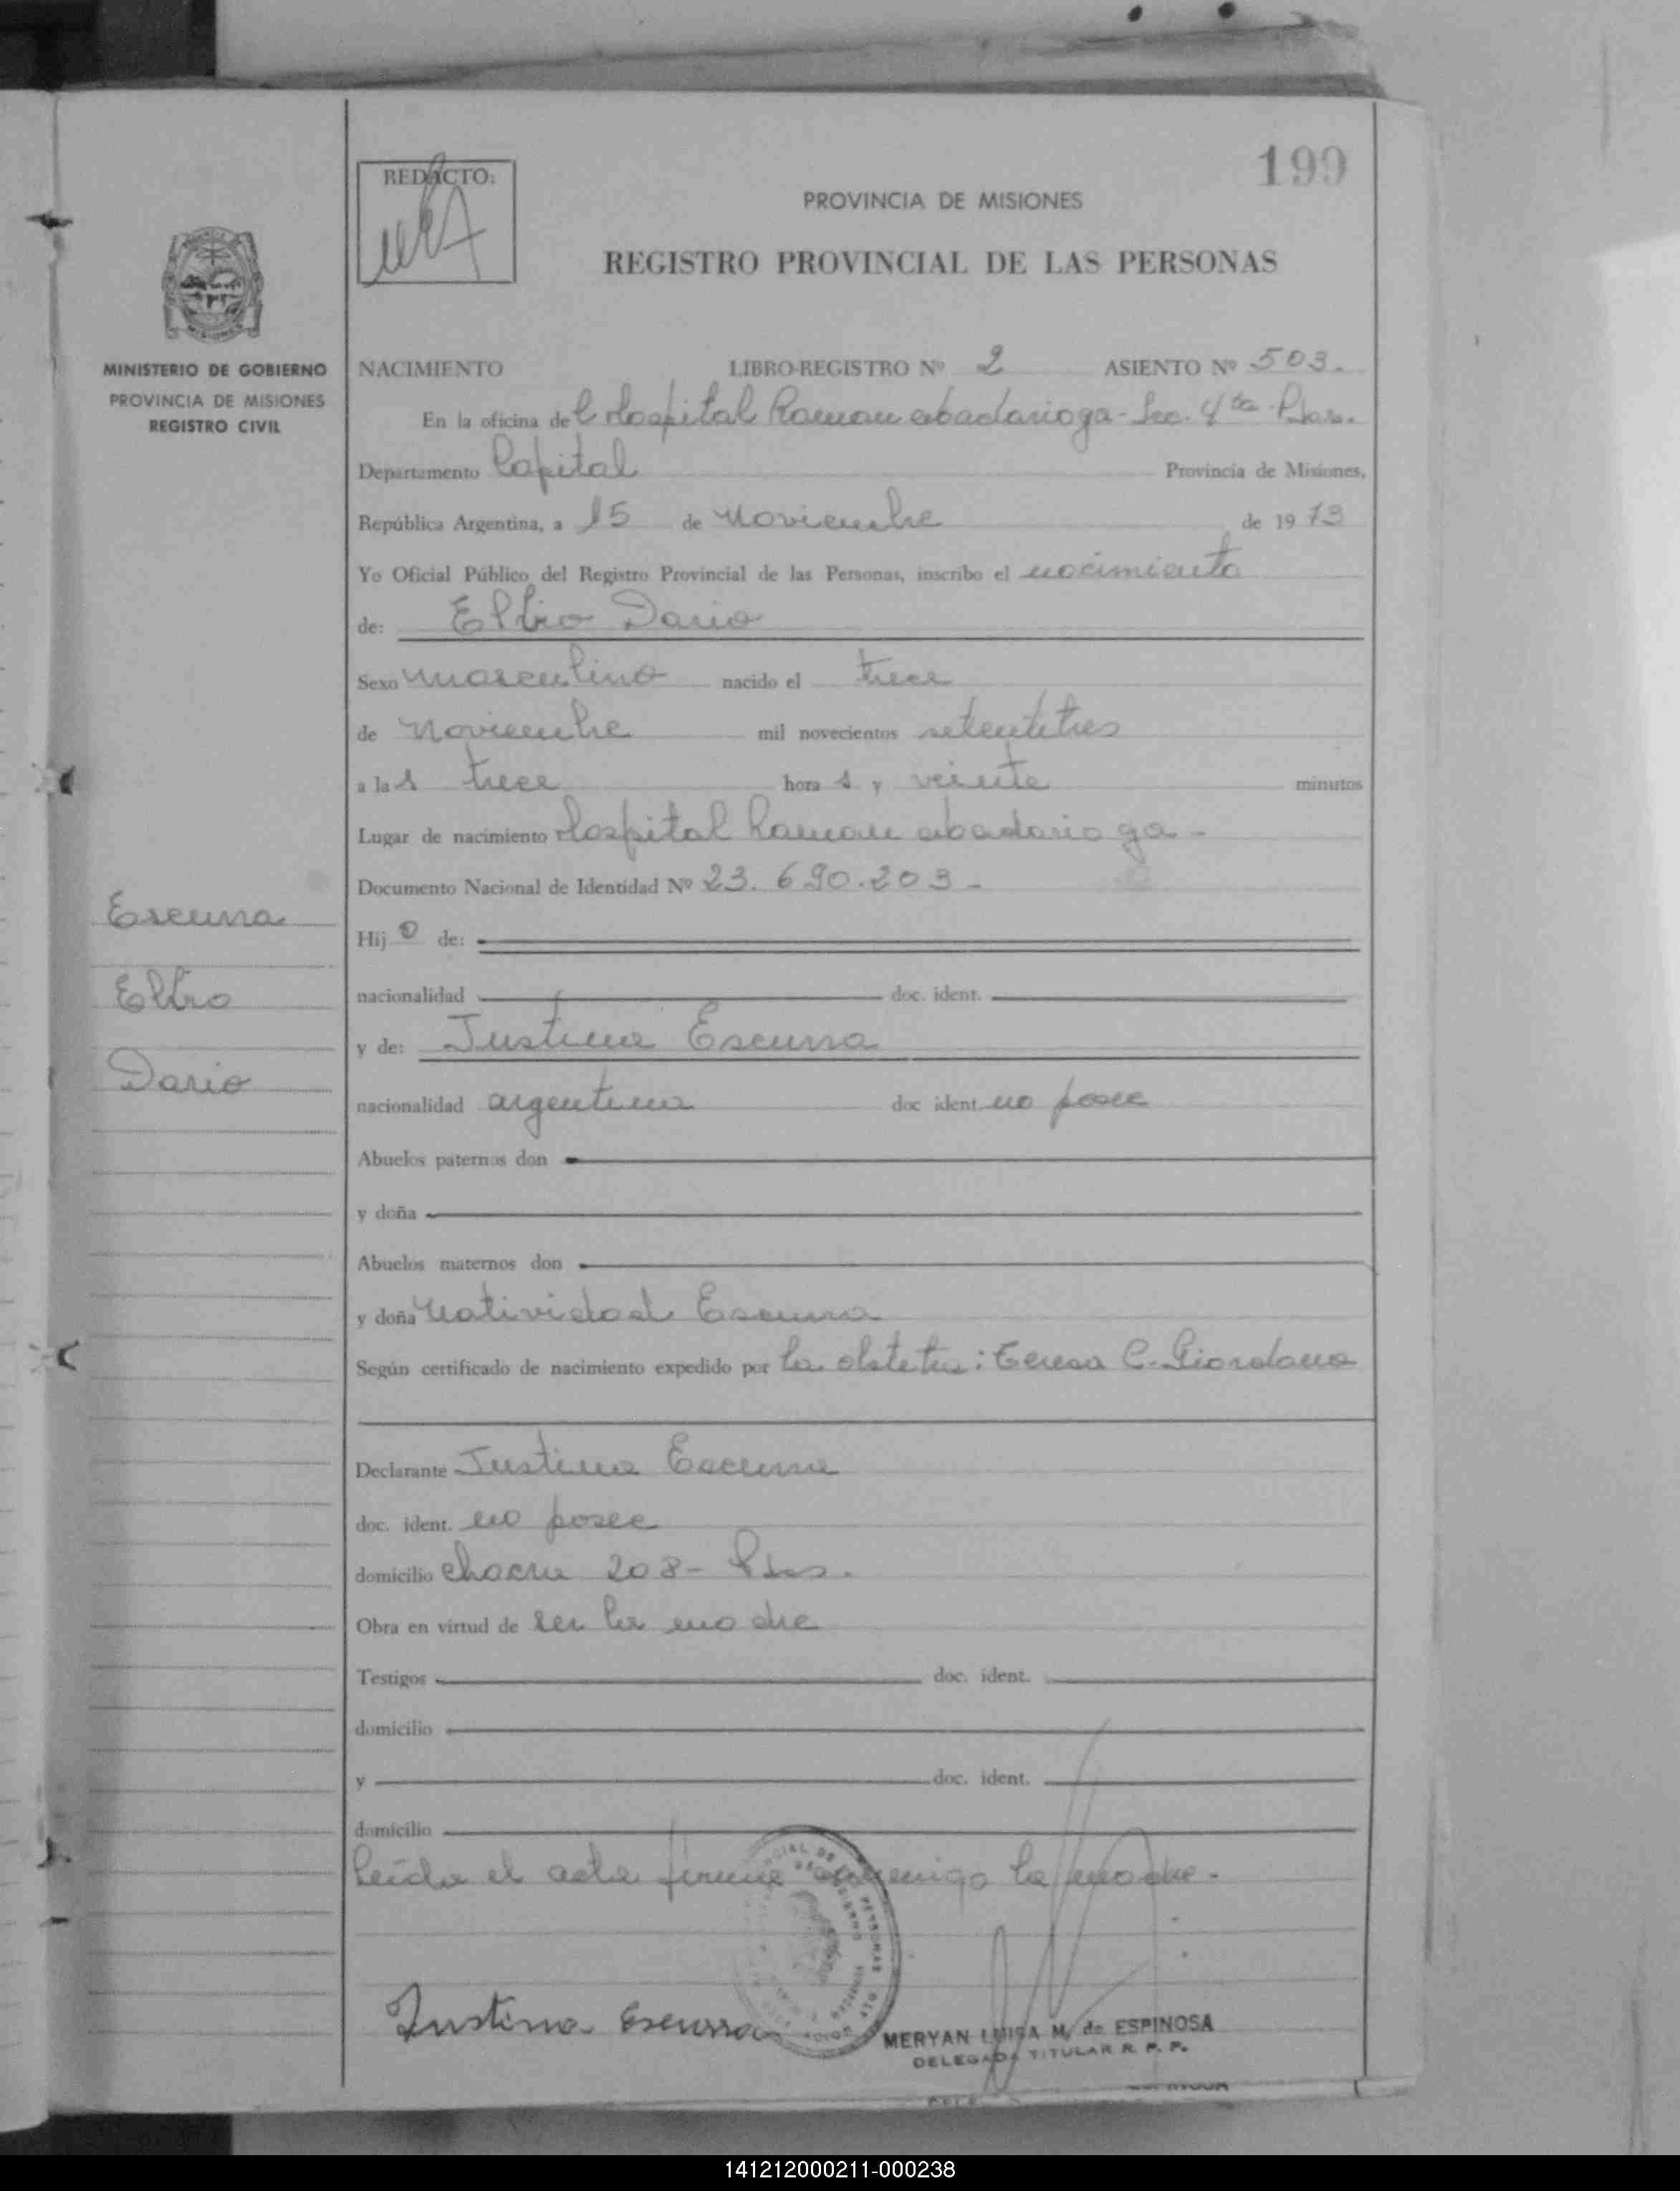 199
REDACTO:
PROVINCIA DE MISIONES
REGISTRO PROVINCIAL DE LAS PERSONAS
MINISTERIO DE GOBIERNO
PROVINCIA DE MISIONES
REGISTRO CIVIL
NACIMIENTO LIBRO-REGISTRO Nº 2 ASIENTO Nº 503.
En la oficina del Hospital Ramon abadarioga - Sec. 4ta Pdas.
Departamento Capital Provincia de Misiones,
República Argentina, a 15 de noviembre de 1973
Yo Oficial Público del Registro Provincial de las Personas, inscribo el nacimiento
de: Elbio Dario
Sexo masculino nacido el trece
de noviembre mil novecientos setentitres
a las trece horas y veinte minutos
Lugar de nacimiento Hospital Ramon abadarioga -
Documento Nacional de Identidad Nº 23.690.203 -
Escurra
Elbio
Dario
Hijo de:
nacionalidad doc. ident.
y de: Justina Escurra
nacionalidad argentina doc ident. no posee
Abuelos paternos don
y doña
Abuelos maternos don
y doña Natividad Escurra
Según certificado de nacimiento expedido por la obstetra: Teresa C. Giordano
Declarante Justina Escurra
doc. ident. no posee
domicilio chacra 208 - Pdas.
Obra en virtud de ser la madre
Testigos doc. ident.
domicilio
y doc. ident.
domicilio
Leida el acta firma conmigo la madre.
Justina Escurra
MERYAN LUISA M. de ESPINOSA
DELEGADA TITULAR R. P. P.
141212000211-000238